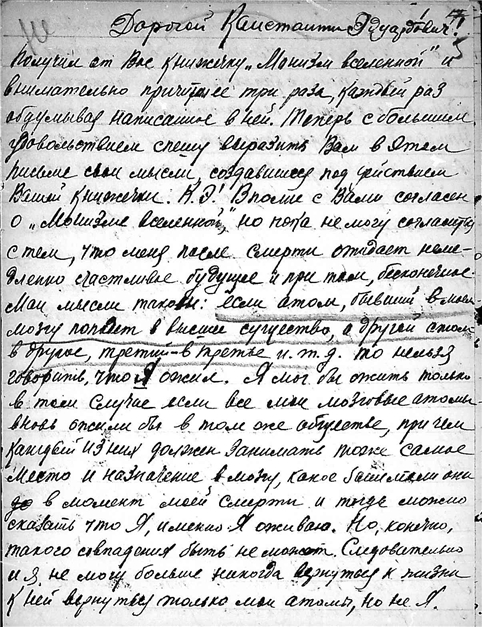 Дорогой Константин Эдуардович!
Получил от Вас книжечку „Монизм вселенной" и
внимательно прочитал ее три раза, каждый раз
обдумывая написанное в ней. Теперь с большим
удовольствием спешу выразить Вам в этом
письме свои мысли, создавшиеся под действием
Вашей книжечки. К.Э! Вполне с Вами согласен
о „Монизме вселенной", но пока не могу согласиться
с тем, что меня после смерти ожидает неме-
дленно счастливое будущее и при том, бесконечное
Мои мысли таковы: если атом, бывший в моем
мозгу попадет в высшее существо, а другой атом
в другое, третий - в третье и.т.д. то нельзя
говорить, что Я ожил. Я мог бы ожить только
в том случае если все мои мозговые атомы
вновь ожили бы в том же обществе, при чем
каждый из них должен занимать тоже самое
место и назначение в мозгу, какое занимали они
в момент моей смерти и тогда можно
сказать что Я, именно Я оживаю. Но, конечно,
такого совпадения быть не может. Следовательно
и я не могу больше никогда вернуться к жизни
к ней вернутся только мои атомы, но не Я.